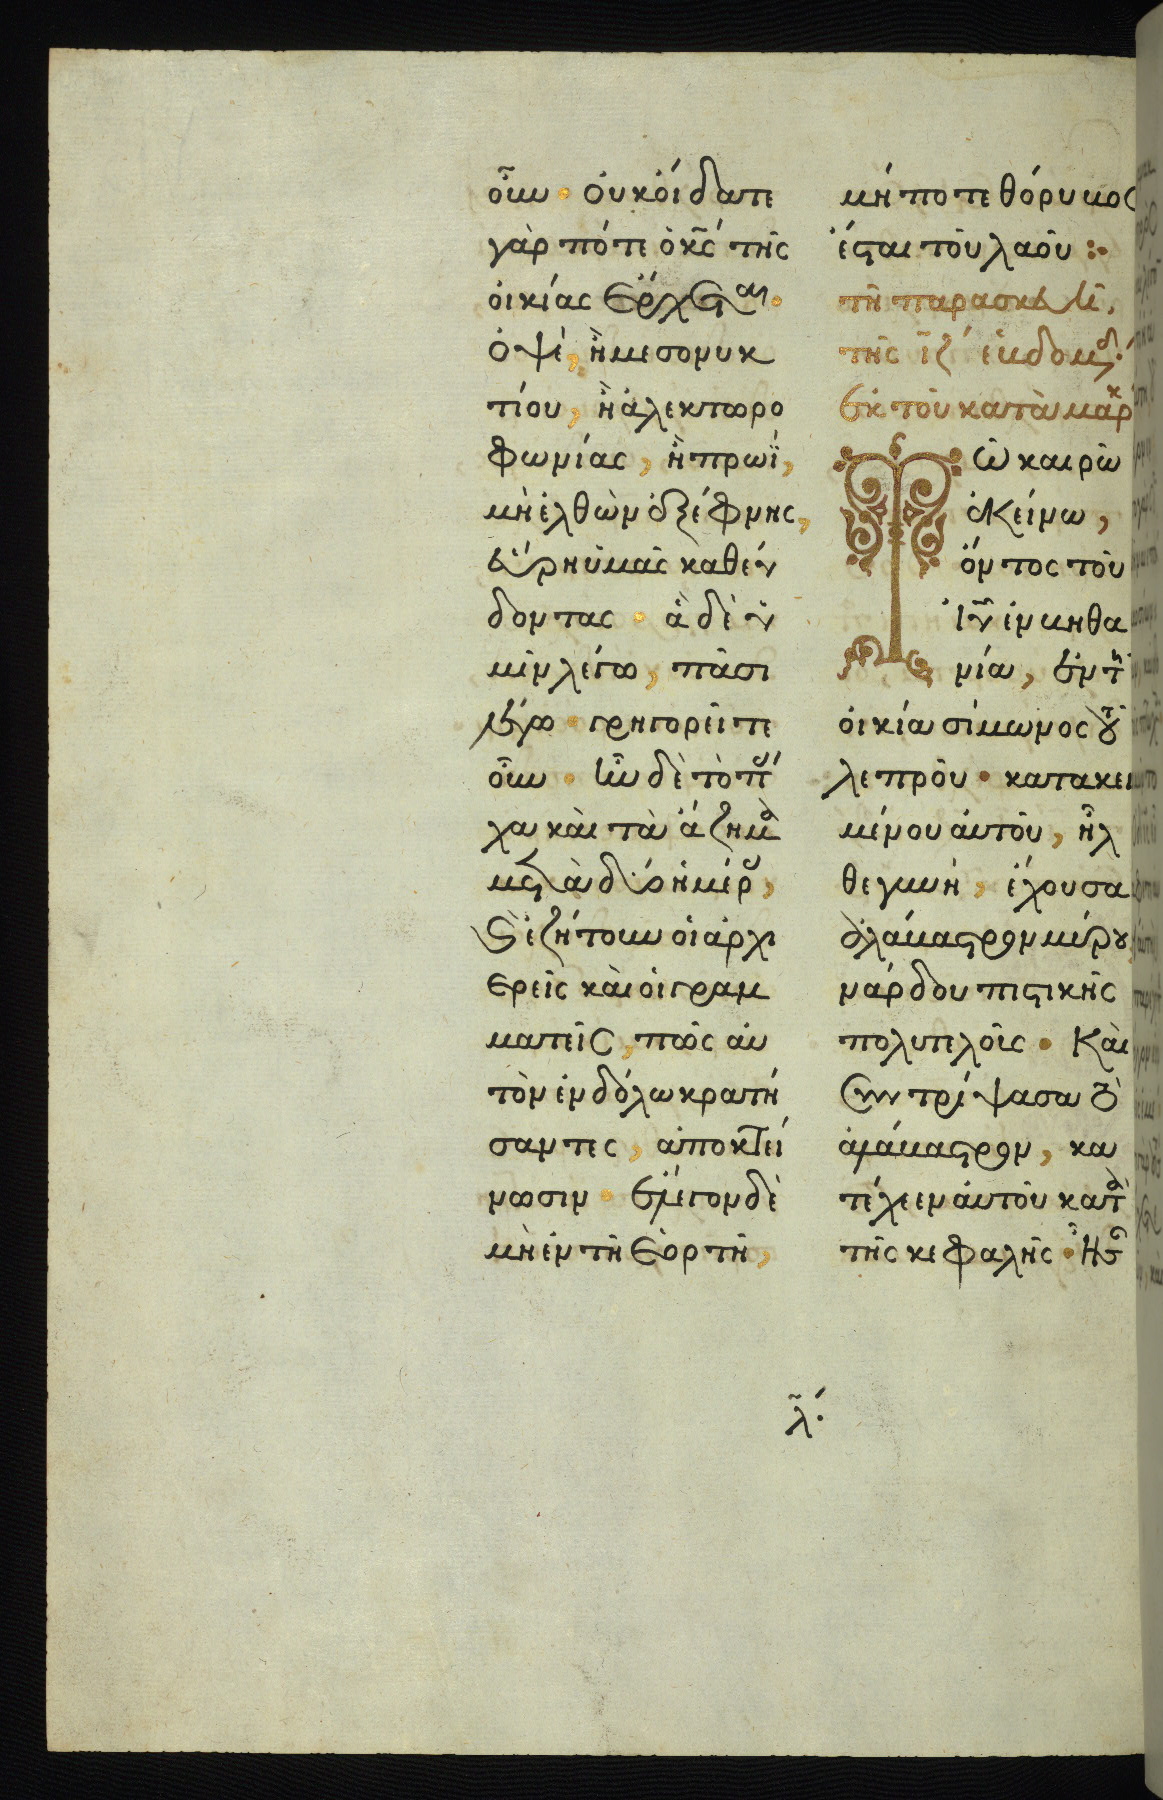 οὖν · οὐκ οἴδατε
γὰρ πότε ὁ κ̅ς̅ τῆς
οἰκίας ἔρχεται ·
ὀψὲ, ἢ μεσονυκ
τίου, ἢ ἀλεκτορο
φωνίας, ἢ πρωῒ,
μὴ ἐλθὼν ἐξέφνης,
εὕρη ὑμᾶς καθεύ
δοντας · ἃ δὲ ὑ
μῖν λέγω, πᾶσι
λέγω · γρηγορεῖτε
οὖν · ἦν δὲ τὸ πά
χα καὶ τὰ ἄζυμα
μετὰ δύο ἡμέρας,
καὶ ἐζήτουν οἱ ἀρχι
ερεῖς καὶ οἱ γραμ
ματεῖς, πῶς αὐ
τὸν ἐν δόλω κρατή
σαντες, ἀποκτεί
νωσιν · ἔλεγον δὲ
μὴ ἐν τῆ ἑορτῆ,
μήποτε θόρυβος
ἔσται τοῦ λαοῦ :·
τῆ παρασκευῆ,
τῆς ιζ ἑβδομάδ ·
ἐκ τοῦ κατὰ μάρκ
Τῶ καιρῶ
ἐκείνω,
ὄντος τοῦ
ι̅υ̅ ἐν βηθα
νία, ἐν τῆ
οἰκία σίμωνος τοῦ
λεπροῦ · κατακει
μένου αὐτοῦ, ἦλ
θε γυνὴ, ἔχουσα
ἀλάβαστρον μύρου
νάρδου πιστικῆς
πολυτελοῦς · Καὶ
συντρίψασα τὸ
ἀλάβαστρον, κα
τέχεεν αὐτοῦ κατὰ
τῆς κεφαλῆς · Ἦσ
λ̅ ·